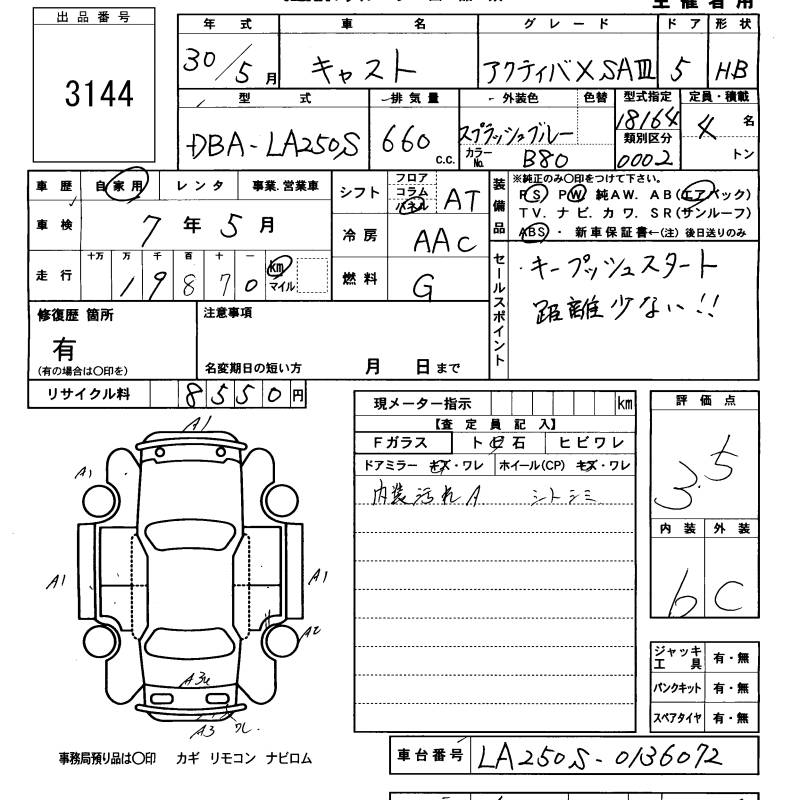 主催者用
出品番号
3144
年式 車名 グレード ドア 形状
30/5月 キャスト アクティバX SAⅢ 5 HB
型式 排気量 外装色 色替 型式指定 定員・積載
DBA-LA250S 660c.c. スプラッシュブルー 18164 4名
カラーNo. B80 類別区分 0002 トン
車歴 自家用 レンタ 事業.営業車
車検 7年5月
走行 十万 万 千 百 十 一 km
19870 マイル
シフト フロア コラム パネル AT
冷房 AAC
燃料 G
装備品
※純正のみ○印をつけて下さい。
PS PW 純AW. AB(エアバック)
TV. ナビ. カワ. SR(サンルーフ)
ABS・新車保証書←(注) 後日送りのみ
セールスポイント
キープッシュスタート
距離少ない!!
修復歴 箇所
有
(有の場合は○印を)
注意事項
名変期日の短い方 月 日まで
リサイクル料 8550円
現メーター指示 km
【査定員記入】
Fガラス ト日石 ヒビワレ
ドアミラー キズ・ワレ ホイール(CP) キズ・ワレ
内装汚れA シトシミ
評価点
3.5
内装 外装
b C
ジャッキ工具 有・無
パンクキット 有・無
スペアタイヤ 有・無
A1
A1
A1
A1
A2
A3
事務局預り品は○印 カギ リモコン ナビロム
車台番号 LA250S-0136072